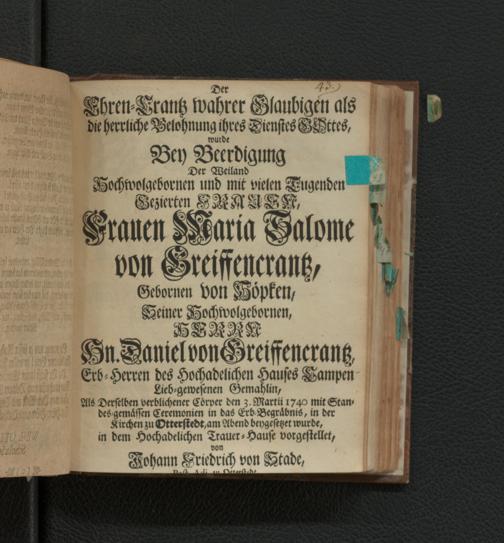 43.)
Der
Ehren-Crantz wahrer Glaubigen als
die herrliche Belohnung ihres Dienstes GOttes,
wurde
Bey Beerdigung
Der Weiland
Hochwolgebornen und mit vielen Tugenden
Gezierten FRAUEN,
Frauen Maria Salome
von Greiffencrantz,
Gebornen von Höpken,
Seiner Hochwolgebornen,
HERRN
Hn. Daniel von Greiffencrantz,
Erb-Herren des Hochadelichen Hauses Campen
Lieb-gewesenen Gemahlin,
Als Derselben verblichener Cörper den 3. Martii 1740 mit Stan-
des-gemässen Ceremonien in das Erb-Begräbnis, in der
Kirchen zu Otterstedt, am Abend beygesetzet wurde,
in dem Hochadelichen Trauer-Hause vorgestellet,
von
Johann Friedrich von Stade,
Past. Adj. zu Otterstedt